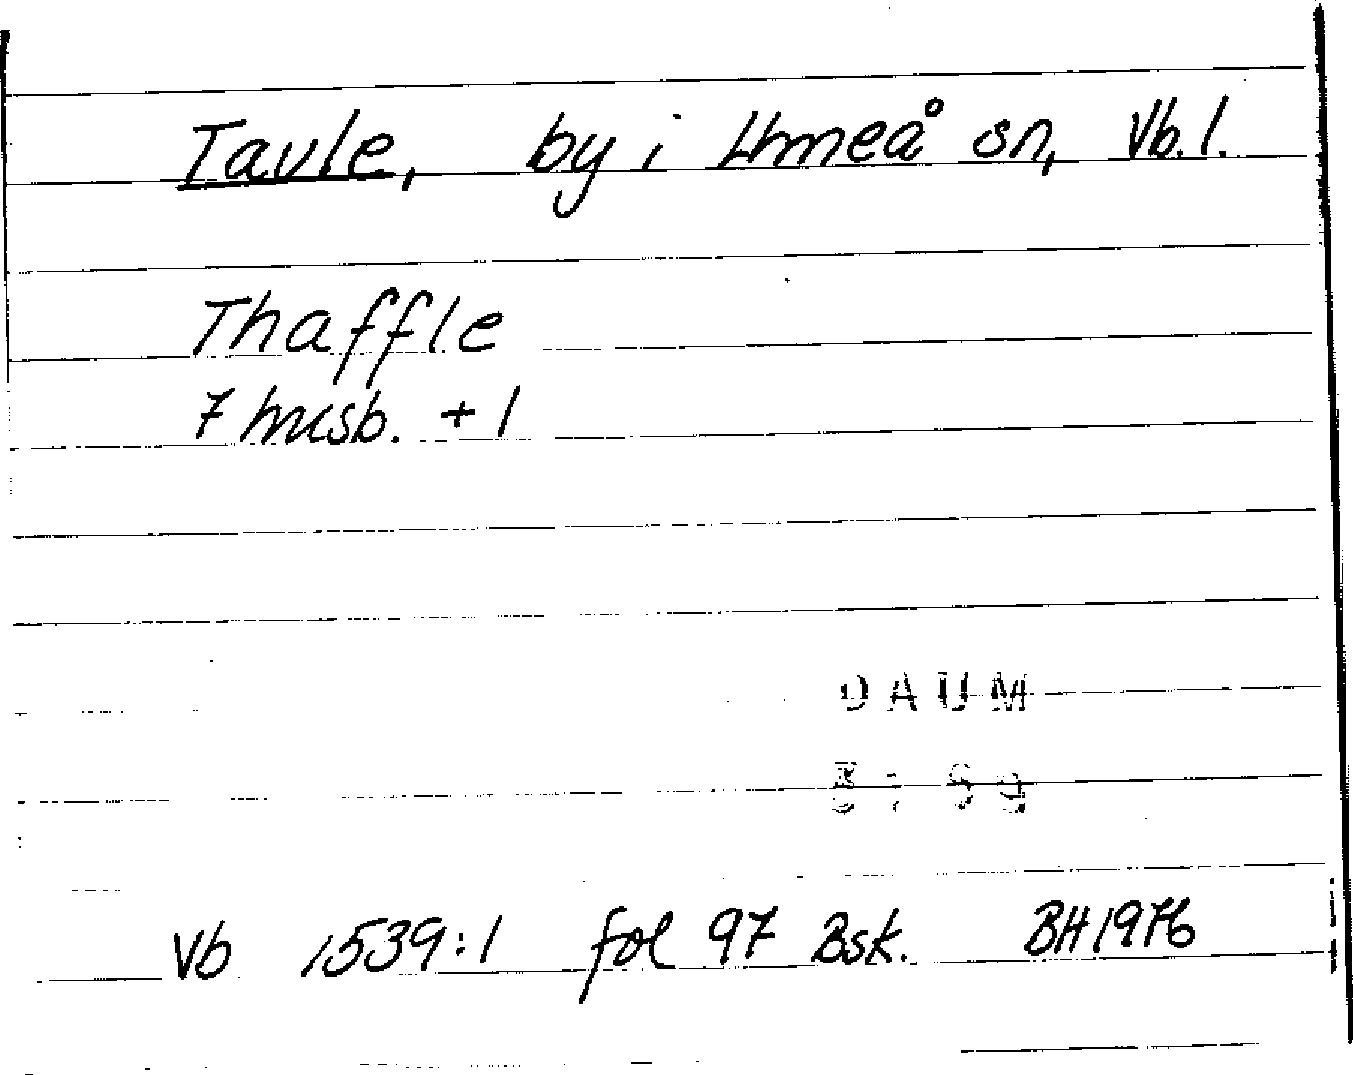 Tavle, by i Umeå sn, Vb. l.
Thaffle
7 husb. + 1
DAUM
Vb 1539:1 fol 97 Bsk. BH 1976